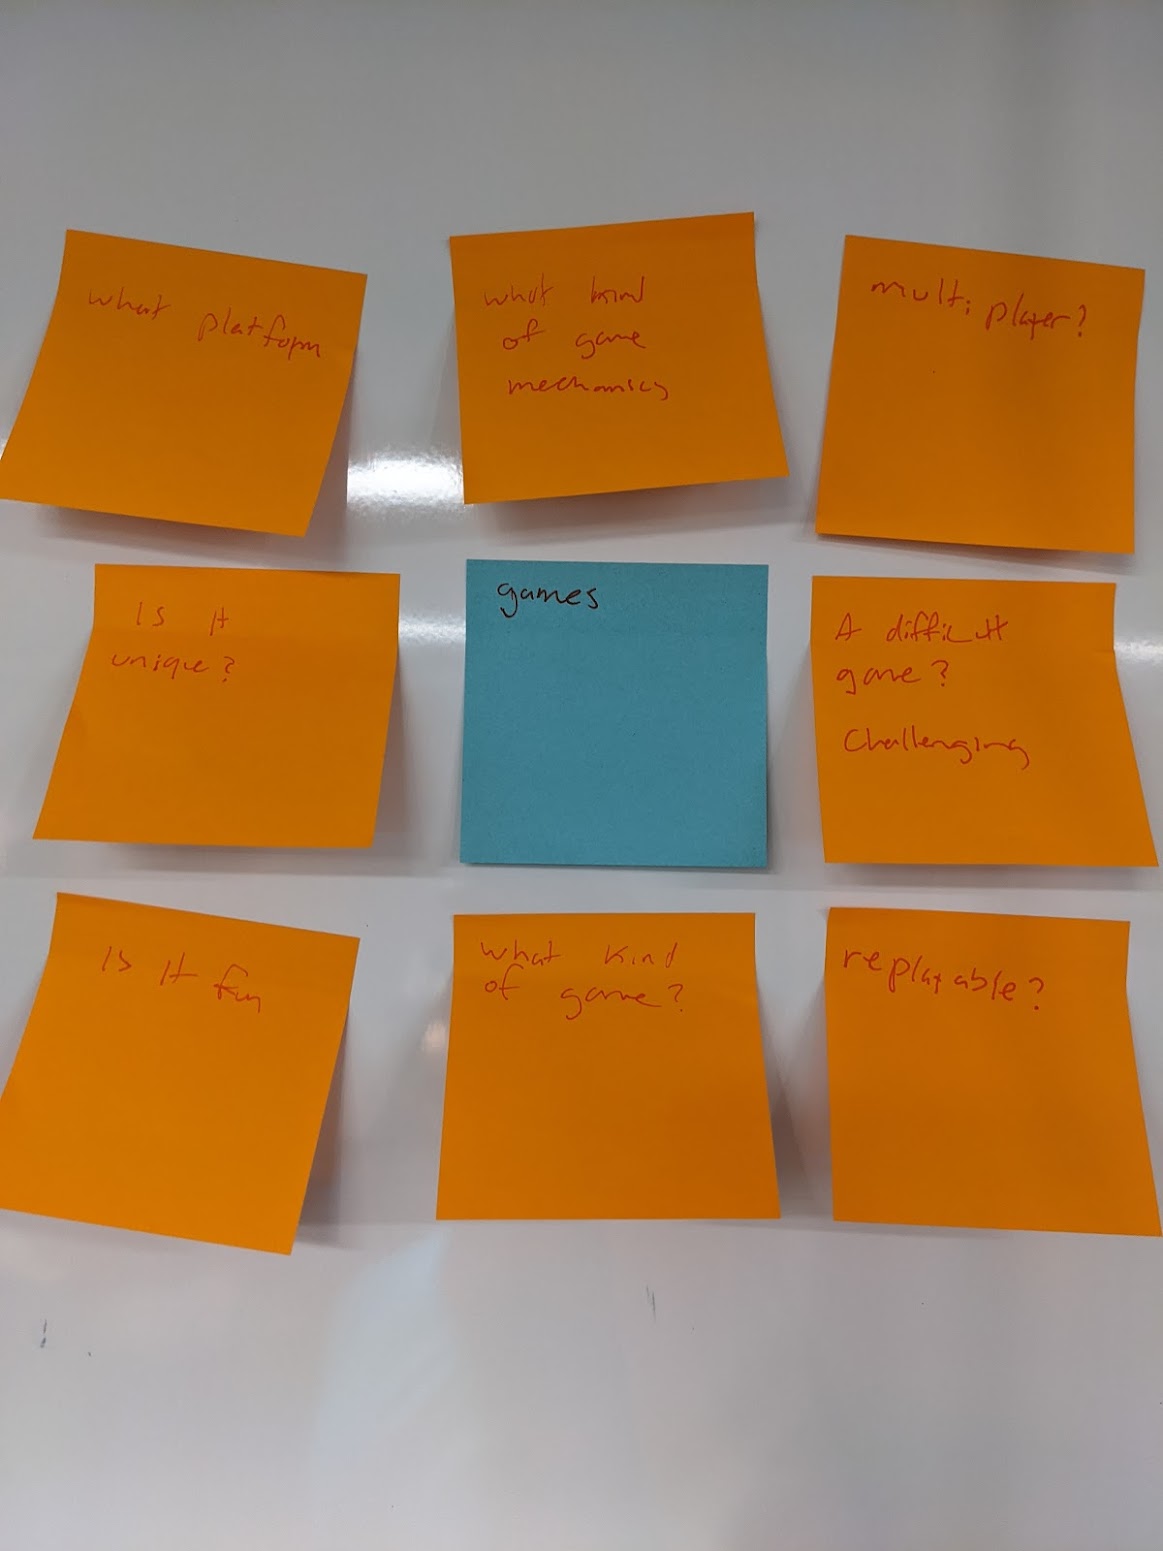 what platform
what kind
of game
mechanics
multiplayer?
Is it
unique?
games
A difficult
game?
Challenging
Is it fun
what kind
of game?
replayable?